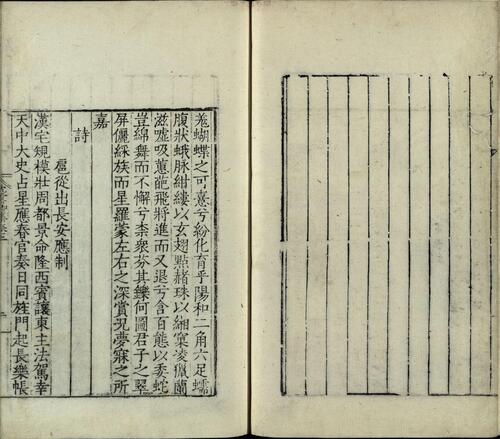 羗蝴蝶之可憙兮紛化育乎陽和二角六足蠕
腹狀蛾脉紺縷以玄翅點赭珠以緗窠凌獵蘭
滋噓吸蕙葩飛將進而又退兮含百態以委蛇
豈綿舞而不懈兮柰衆芬其鑠何圖君子之翠
屏儷綵族而星羅蒙左右之深賞況夢寐之所
嘉
詩
扈從出長安應制
漢宅規模壯周都景命隆西賓讓東主法駕幸
天中大史占星應春官奏日同旌門起長樂帳